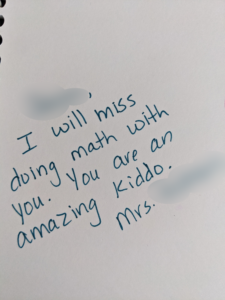 ,
I will miss
doing math with
you. You are an
amazing Kiddo.
Mrs.